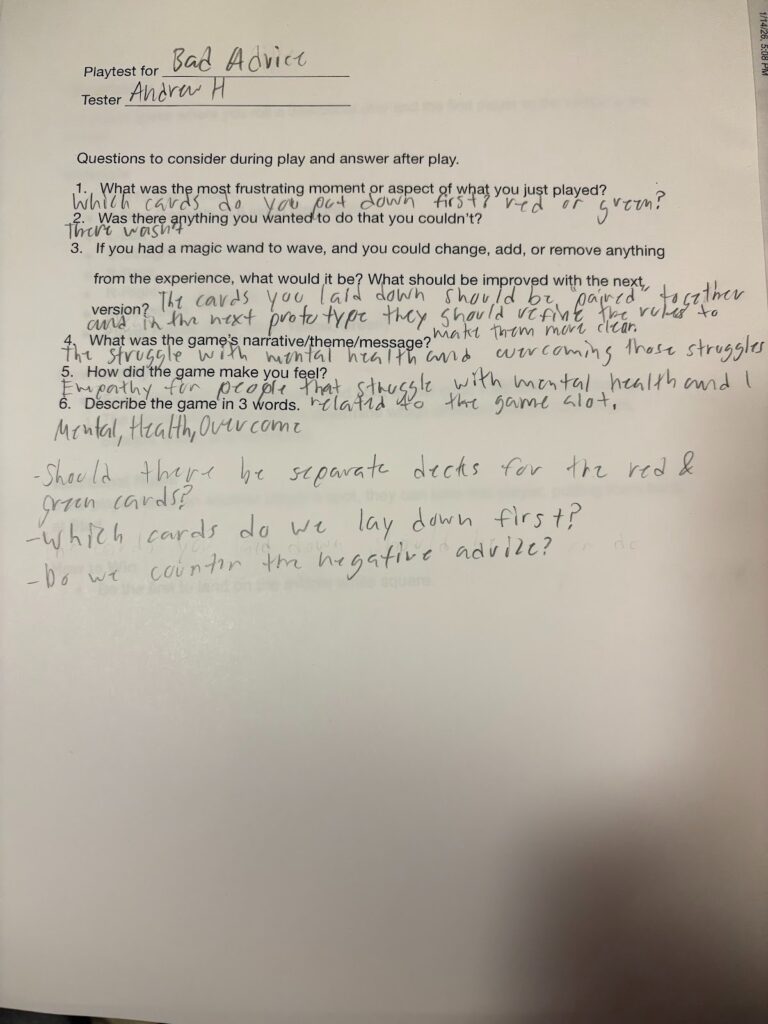 1/14/26, 5:08 PM
Playtest for Bad Advice
Tester Andrew H
Questions to consider during play and answer after play.
1. What was the most frustrating moment or aspect of what you just played?
Which cards do you put down first? red or green?
2. Was there anything you wanted to do that you couldn't?
There wasn't
3. If you had a magic wand to wave, and you could change, add, or remove anything
from the experience, what would it be? What should be improved with the next
version? The cards you laid down should be paired together
and in the next prototype they should refine the rules to
make them more clear.
4. What was the game's narrative/theme/message?
The struggle with mental health and overcoming those struggles
5. How did the game make you feel?
Empathy for people that struggle with mental health and I
related to the game alot.
6. Describe the game in 3 words.
Mental, Health, Overcome
-Should there be separate decks for the red &
green cards?
-Which cards do we lay down first?
-Do we counter the negative advize?